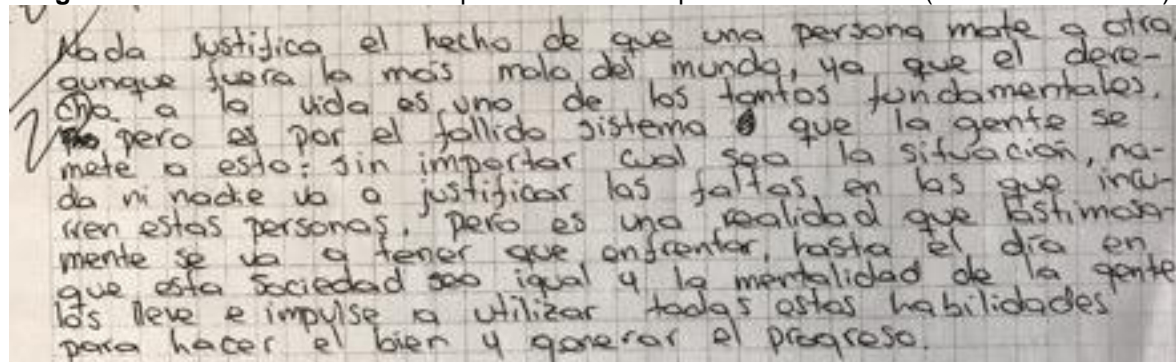 Nada justifica el hecho de que una persona mate a otra,
aunque fuera la más mala del mundo, ya que el dere-
cho a la vida es uno de los tantos fundamentales.
pero es por el fallido sistema que la gente se
mete a esto; sin importar cual sea la situación, na-
da ni nadie va a justificar las faltas en las que incu-
rren estas personas. Pero es una realidad que lastimosa-
mente se va a tener que enfrentar, hasta el día en
que esta sociedad sea igual y la mentalidad de la gente
los lleve e impulse a utilizar todas estas habilidades
para hacer el bien y generar el progreso.